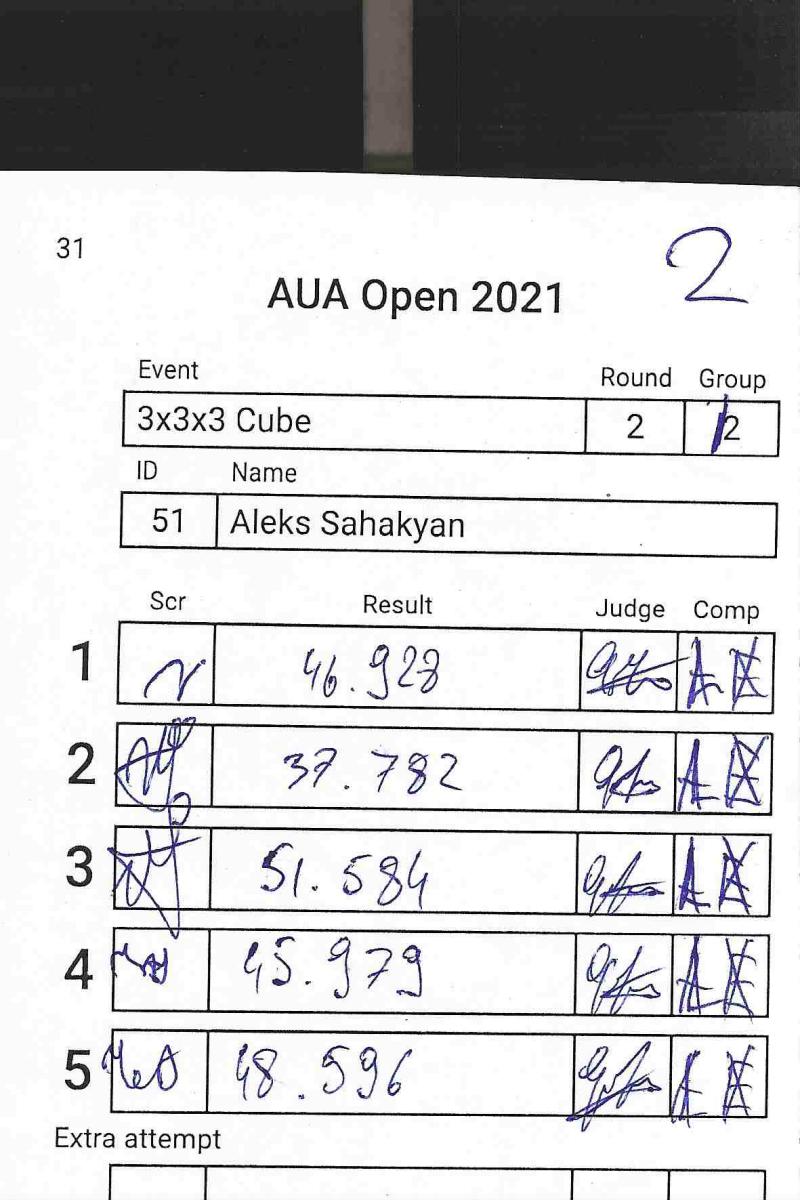 31
2
AUA Open 2021
Event Round Group
3x3x3 Cube 2 12
ID Name
51 Aleks Sahakyan
Scr Result Judge Comp
1 46.928
2 37.782
3 51.584
4 45.979
5 48.596
Extra attempt